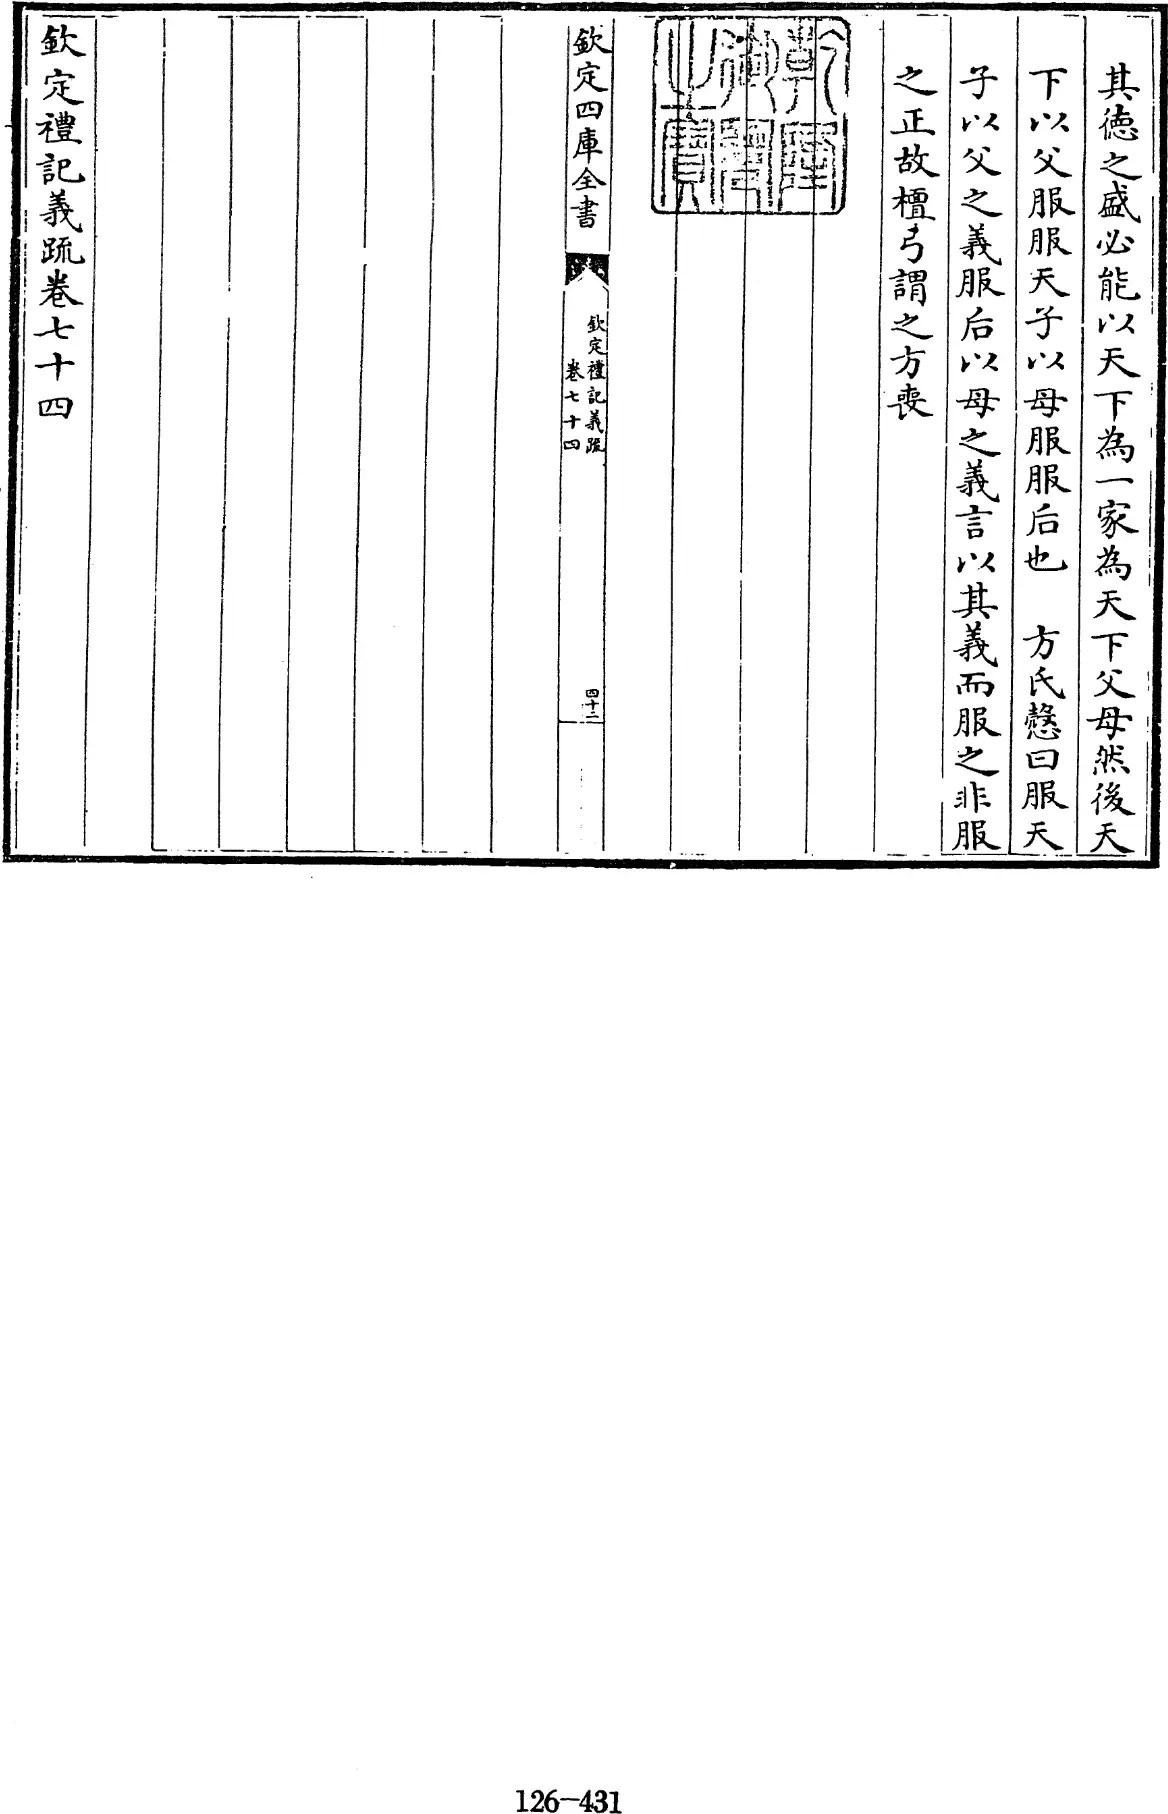 其徳之盛必能以天下為一家為天下父母然後天
下以父服服天子以母服服后也　方氏慤曰服天
子以父之義服后以母之義言以其義而服之非服
之正故檀弓謂之方喪
乾隆御覽之寶
欽定四庫全書
欽定禮記義疏
卷七十四
四十二
欽定禮記義疏卷七十四
126-431